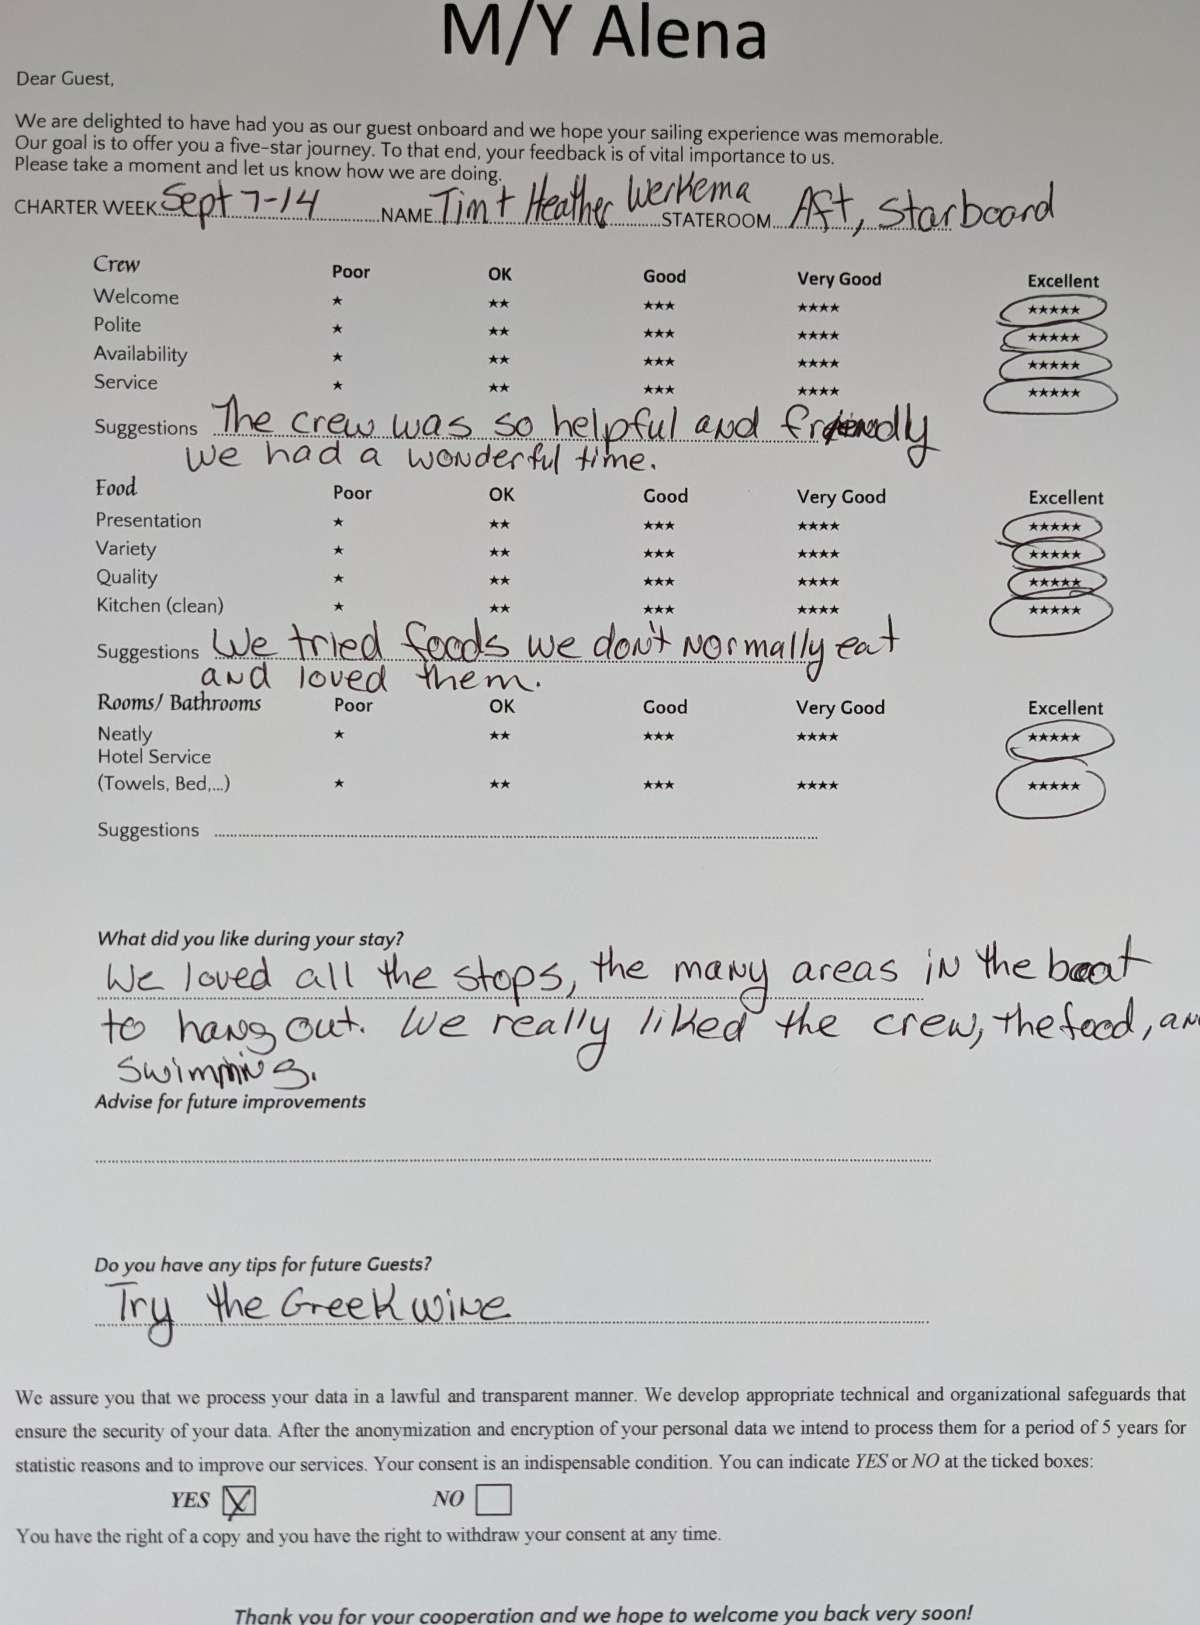 M/Y Alena
Dear Guest,
We are delighted to have had you as our guest onboard and we hope your sailing experience was memorable.
Our goal is to offer you a five-star journey. To that end, your feedback is of vital importance to us.
Please take a moment and let us know how we are doing.
CHARTER WEEK Sept 7-14 NAME Tim + Heather Werkema STATEROOM Aft, Starboard
Crew Poor OK Good Very Good Excellent
Welcome ★ ★★ ★★★ ★★★★ ★★★★★
Polite ★ ★★ ★★★ ★★★★ ★★★★★
Availability ★ ★★ ★★★ ★★★★ ★★★★★
Service ★ ★★ ★★★ ★★★★ ★★★★★
Suggestions The crew was so helpful and friendly
we had a wonderful time.
Food Poor OK Good Very Good Excellent
Presentation ★ ★★ ★★★ ★★★★ ★★★★★
Variety ★ ★★ ★★★ ★★★★ ★★★★★
Quality ★ ★★ ★★★ ★★★★ ★★★★★
Kitchen (clean) ★ ★★ ★★★ ★★★★ ★★★★★
Suggestions We tried foods we don't normally eat
and loved them.
Rooms/ Bathrooms Poor OK Good Very Good Excellent
Neatly ★ ★★ ★★★ ★★★★ ★★★★★
Hotel Service
(Towels, Bed,...) ★ ★★ ★★★ ★★★★ ★★★★★
Suggestions
What did you like during your stay?
We loved all the stops, the many areas in the boat
to hang out. We really liked the crew, the food, an
swimming.
Advise for future improvements
Do you have any tips for future Guests?
Try the Greek wine
We assure you that we process your data in a lawful and transparent manner. We develop appropriate technical and organizational safeguards that
ensure the security of your data. After the anonymization and encryption of your personal data we intend to process them for a period of 5 years for
statistic reasons and to improve our services. Your consent is an indispensable condition. You can indicate YES or NO at the ticked boxes:
YES X NO
You have the right of a copy and you have the right to withdraw your consent at any time.
Thank you for your cooperation and we hope to welcome you back very soon!